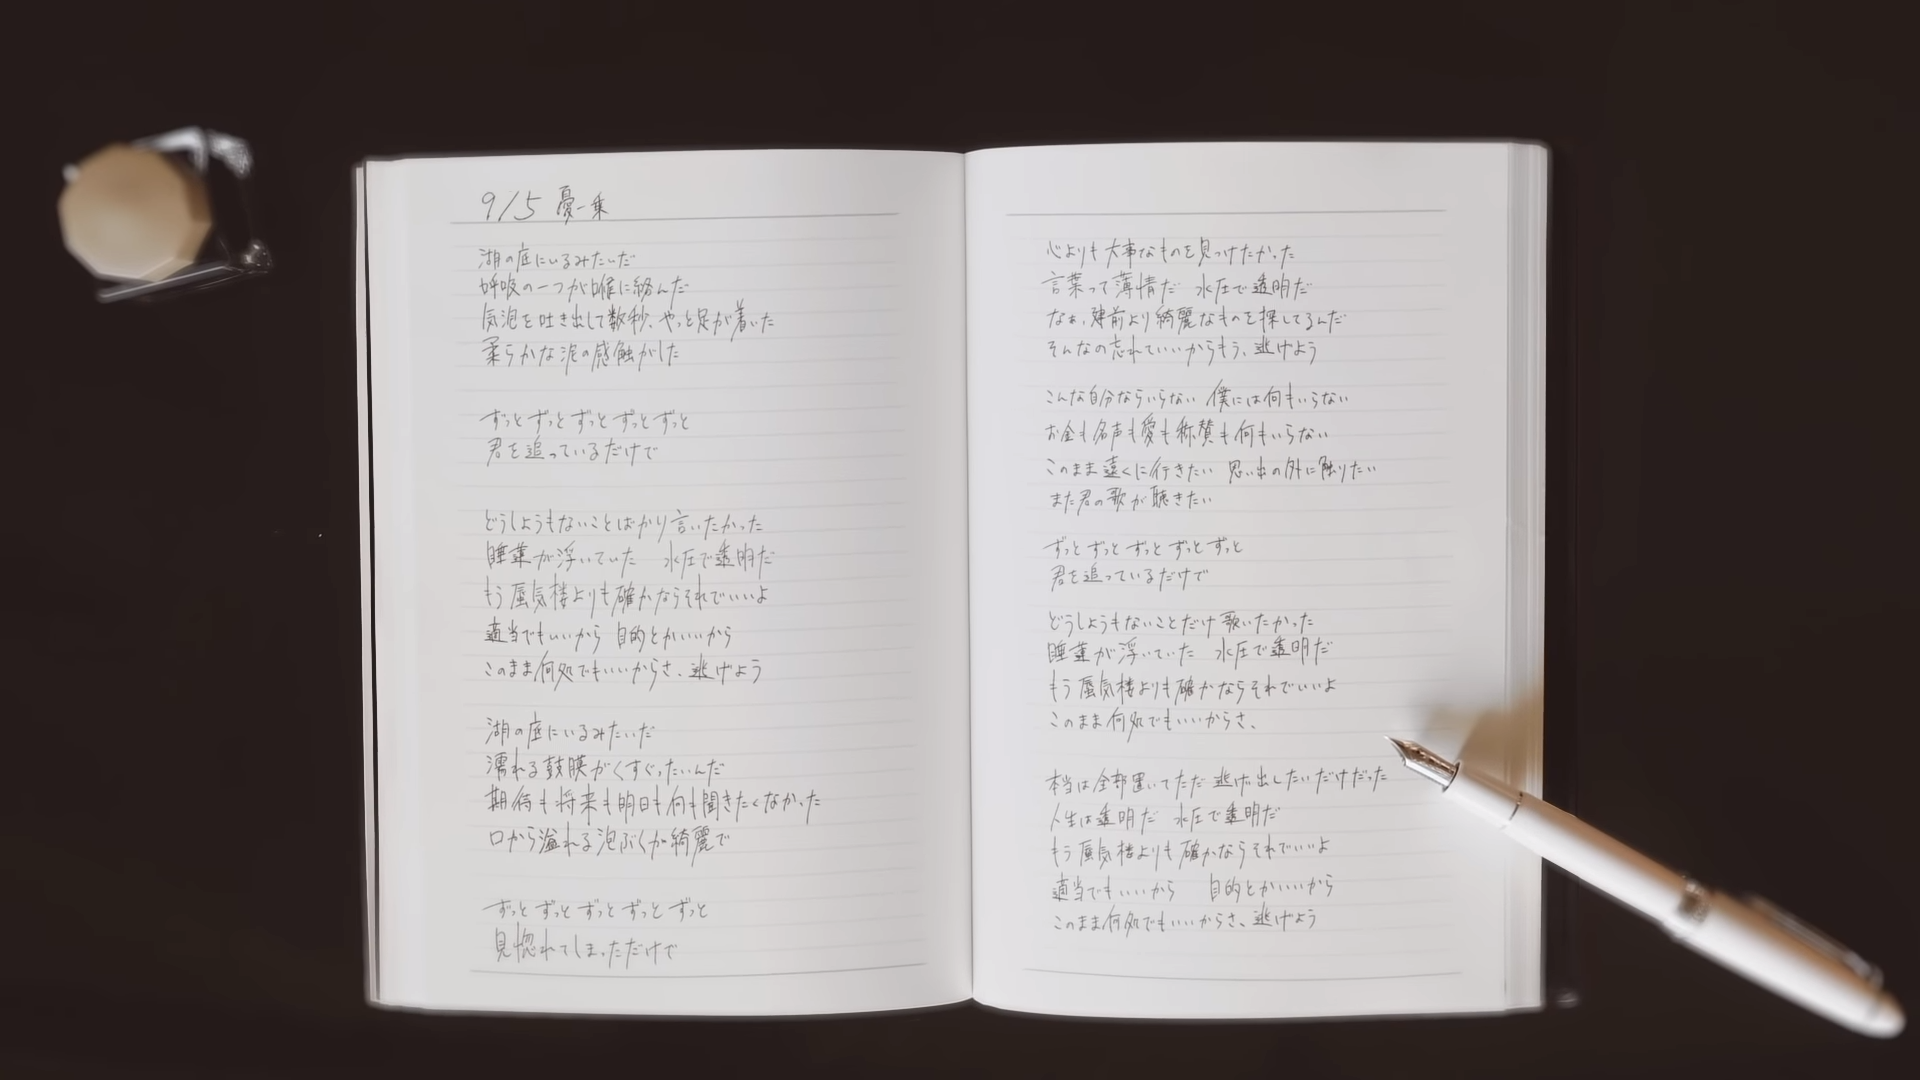 9/5 憂一乗
湖の底にいるみたいだ
呼吸の一つが喉に絡んだ
気泡を吐き出して数秒、やっと足が着いた
柔らかな泥の感触がした
ずっと ずっと ずっと ずっと ずっと
君を追っているだけで
どうしようもないことばかり言いたかった
睡蓮が浮いていた 水圧で透明だ
もう蜃気楼よりも確かならそれでいいよ
適当でもいいから 目的とかいいから
このまま何処でもいいからさ、逃げよう
湖の底にいるみたいだ
濡れる鼓膜がくすぐったいんだ
期待も将来も明日も何も聞きたくなかった
口から溢れる泡ぶくが綺麗で
ずっと ずっと ずっと ずっと ずっと
見惚れてしまっただけで
心よりも大事なものを見つけたかった
言葉って薄情だ 水圧で透明だ
なぁ、建前より綺麗なものを探してるんだ
そんなの忘れていいからもう、逃げよう
こんな自分ならいらない 僕には何もいらない
お金も名声も愛も称賛も何もいらない
このまま遠くに行きたい 思い出の外に触りたい
また君の歌が聴きたい
ずっと ずっと ずっと ずっと ずっと
君を追っているだけで
どうしようもないことだけ歌いたかった
睡蓮が浮いていた 水圧で透明だ
もう蜃気楼よりも確かならそれでいいよ
このまま何処でもいいからさ、
本当は全部置いてただ逃げ出したいだけだった
人生は透明だ 水圧で透明だ
もう蜃気楼よりも確かならそれでいいよ
適当でもいいから 目的とかいいから
このまま何処でもいいからさ、逃げよう